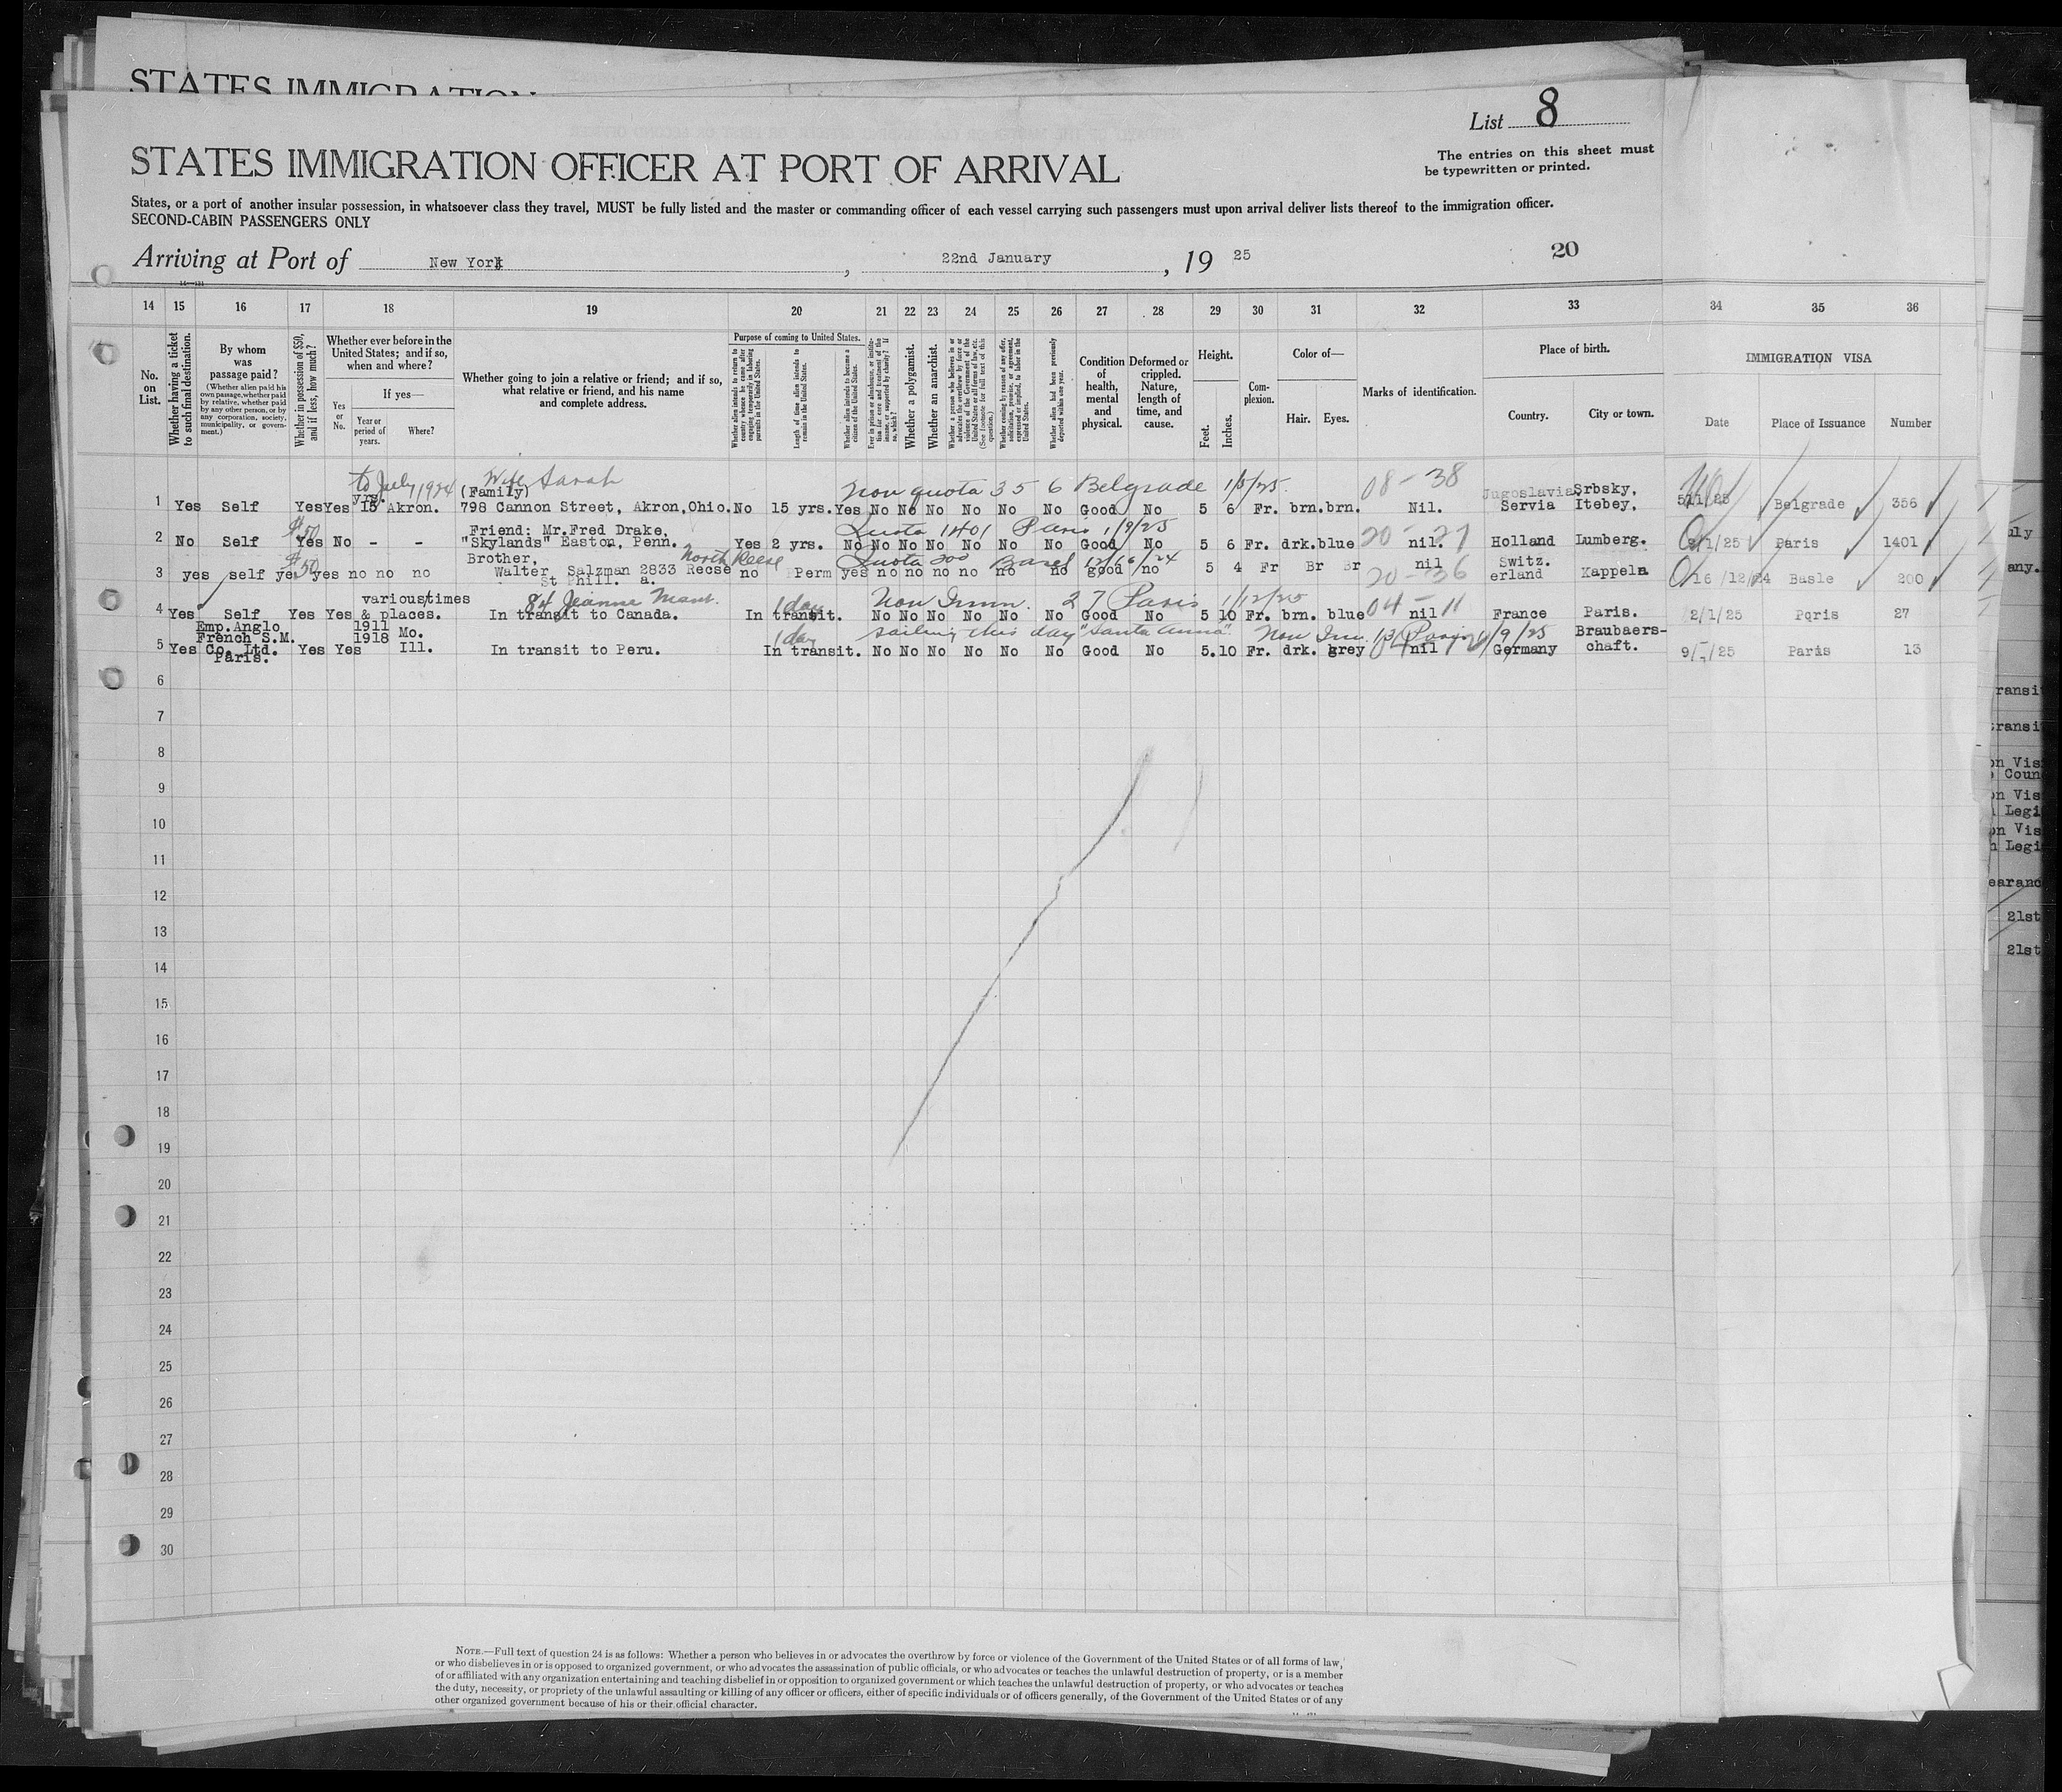 STATES IMMIGRATION
List 8
The entries on this sheet must
be typewritten or printed.
STATES IMMIGRATION OFFICER AT PORT OF ARRIVAL
States, or a port of another insular possession, in whatsoever class they travel, MUST be fully listed and the master or commanding officer of each vessel carrying such passengers must upon arrival deliver lists thereof to the immigration officer.
SECOND-CABIN PASSENGERS ONLY
Arriving at Port of New York, 22nd January, 19 25
20
14 15 16 17 18 19 20 21 22 23 24 25 26 27 28 29 30 31 32 33 34 35 36
No. on List.
Whether having a ticket to such final destination.
By whom was passage paid?
(Whether alien paid his own passage, whether paid by relative, whether paid by any other person, or by any corporation, society, municipality, or government.)
Whether in possession of $50, and if less, how much?
Whether ever before in the United States; and if so, when and where?
Yes or No.
If yes—
Year or period of years.
Where?
Whether going to join a relative or friend; and if so, what relative or friend, and his name and complete address.
Purpose of coming to United States.
Whether alien intends to return to country whence he came after engaging temporarily in laboring pursuits in the United States.
Length of time alien intends to remain in the United States.
Whether alien intends to become a citizen of the United States.
Ever in prison or almshouse, or institution for care and treatment of the insane, or supported by charity? If so, which?
Whether a polygamist.
Whether an anarchist.
Whether a person who believes in or advocates the overthrow by force or violence of the Government of the United States or all forms of law, etc. (See footnote for full text of this question.)
Whether coming by reason of any offer, solicitation, promise, or agreement, expressed or implied, to labor in the United States.
Whether alien had been previously deported within one year.
Condition of health, mental and physical.
Deformed or crippled. Nature, length of time, and cause.
Height.
Feet. Inches.
Complexion.
Color of—
Hair. Eyes.
Marks of identification.
Place of birth.
Country. City or town.
IMMIGRATION VISA
Date Place of Issuance Number
to July 1924 Wife Sarah Non quota 356 Belgrade 1/5/25. 08-38
yrs. (Family) Jugoslavia Srbsky,
1 Yes Self Yes Yes 15 Akron. 798 Cannon Street, Akron, Ohio. No 15 yrs. Yes No No No No No No Good No 5 6 Fr. brn. brn. Nil. Servia Itebey, Belgrade 356
$50 Friend: Mr. Fred Drake, Quota 1401 Paris 1/9/25 20-27
2 No Self Yes No - - "Skylands" Easton, Penn. Yes 2 yrs. No No No No No No No Good No 5 6 Fr. drk. blue nil. Holland Lumberg. Paris 1401
$50 Brother, North Reese Quota 200 Basel 12/16/24 20-36
3 yes self yes yes no no no Walter Salzman 2833 Recse no Perm yes no no no no no no good no 5 4 Fr Br Br nil Switz.erland Kappeln 16/12/24 Basle 200
St Phill. a.
various times 84 Jeanne Mant. 1 day Non Imm. 27 Paris 1/12/25 04-11
4 Yes Self Yes Yes & places. In transit to Canada. In transit. No No No No No No Good No 5 10 Fr. brn. blue nil France Paris. 2/1/25 Pqris 27
Emp. Anglo 1911 1 day sailing this day "Santa Anna". Non Im. 13 Paris 1/9/25 Braubaers-
French S.M. 1918 Mo.
5 Yes Co. Ltd. Yes Yes Ill. In transit to Peru. In transit. No No No No No No Good No 5.10 Fr. drk. grey nil Germany chaft. Paris 13
Paris.
6
7
8
9
10
11
12
13
14
15
16
17
18
19
20
21
22
23
24
25
26
27
28
29
30
NOTE.—Full text of question 24 is as follows: Whether a person who believes in or advocates the overthrow by force or violence of the Government of the United States or of all forms of law,
or who disbelieves in or is opposed to organized government, or who advocates the assassination of public officials, or who advocates or teaches the unlawful destruction of property, or is a member
of or affiliated with any organization entertaining and teaching disbelief in or opposition to organized government or which teaches the unlawful destruction of property, or who advocates or teaches
the duty, necessity, or propriety of the unlawful assaulting or killing of any officer or officers, either of specific individuals or of officers generally, of the Government of the United States or of any
other organized government because of his or their official character.